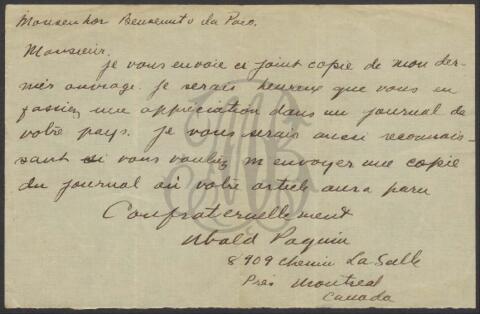 Monsenhor Benvenuto da Paco.
Monsieur.
je vous envoie ci joint copie de mon der-
nier ouvrage. je serais heureux que vous en
fassiez une appréciation dans un journal de
votre pays. je vous serais aussi reconnais-
sant si vous vouliez m envoyer une copie
du journal où votre article aura paru
Confraternellement
Ubald Paquin
8909 Chemin LaSalle
Près Montreal
Canada